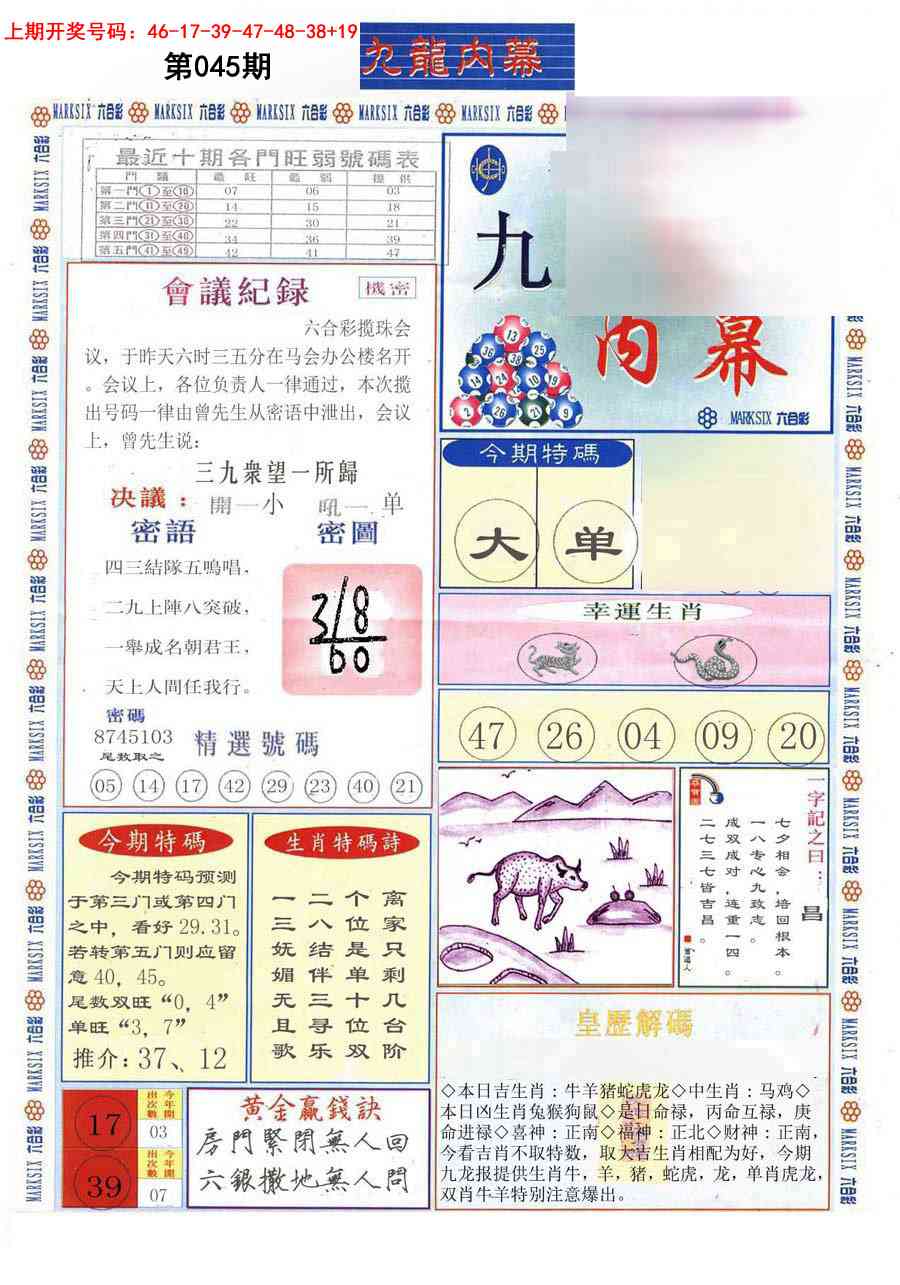 上期开奖号码：46-17-39-47-48-38+19
第045期
九龍内幕
MARKSIX 六合彩 MARKSIX 六合彩 MARKSIX 六合彩 MARKSIX 六合彩 MARKSIX 六合彩
最近十期各門旺弱號碼表
門類 最旺 最弱 提供
第一門①至⑩ 07 06 03
第二門⑪至⑳ 14 15 18
第三門㉑至㉚ 22 30 21
第四門㉛至㊵ 34 36 39
第五門㊶至㊾ 42 41 47
會議紀録 機密
六合彩揽珠会
议，于昨天六时三五分在马会办公楼名开
。会议上，各位负责人一律通过，本次揽
出号码一律由曾先生从密语中泄出，会议
上，曾先生说：
三九衆望一所歸
决議： 開一小 吼一单
密語 密圖
四三結隊五鳴唱，
二九上陣八突破，
一舉成名朝君王，
天上人間任我行。
318
60
密碼
8745103
尾数取之
精選號碼
05 14 17 42 29 23 40 21
九
内幕
13
36 38 25
14 24 10 19
2 26 21 9
MARKSIX 六合彩
今期特碼
大 单
幸運生肖
47 26 04 09 20
一字記之曰：昌
七夕相会，培回根本。
一八专心九致志。
成双成对，连重一四。
二七三七皆吉昌。
今期特碼
今期特码预测
于第三门或第四门
之中，看好29.31。
若转第五门则应留
意40，45。
尾数双旺“0，4”
单旺“3，7”
推介：37、12
生肖特碼詩
一二个离
三八位家
妩结是只
媚伴单剩
无三十几
且寻位台
歌乐双阶
皇歷解碼
◇本日吉生肖：牛羊猪蛇虎龙◇中生肖：马鸡◇
本日凶生肖兔猴狗鼠◇是日命禄，丙命互禄，庚
命进禄◇喜神：正南◇福神：正北◇财神：正南，
今看吉肖不取特数，取大吉生肖相配为好，今期
九龙报提供生肖牛，羊，猪，蛇虎，龙，单肖虎龙，
双肖牛羊特别注意爆出。
17 今年開出次數 03
39 今年開出次數 07
黃金贏錢訣
房門緊閉無人回
六銀撒地無人問